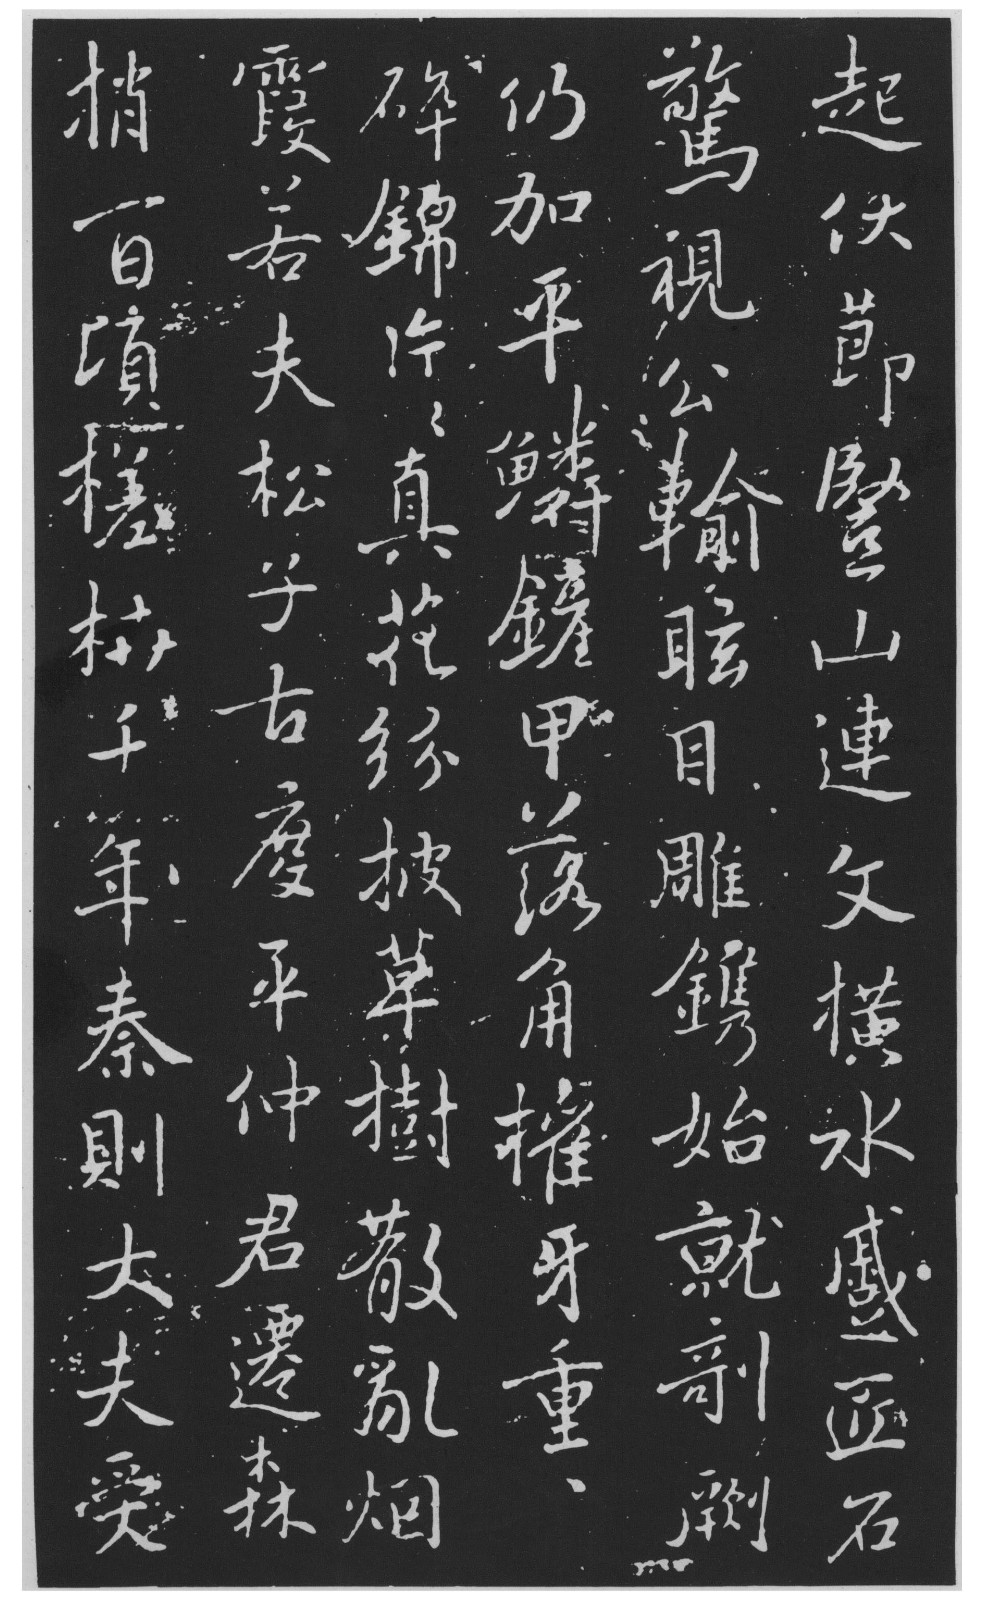 起伏節竪山連文橫水蹙匠石
驚視公輸眩目雕鐫始就剞劂
仍加平鱗鏟甲落角摧牙重、
碎錦片〻真花紛披草樹散亂烟
霞若夫松子古度平仲君遷森
梢百頃槎枿千年秦則大夫受